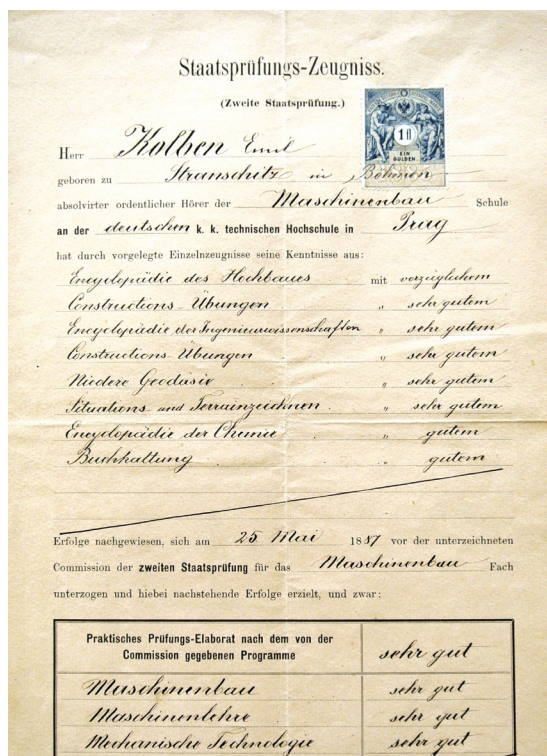 Staatsprüfungs-Zeugniss.
(Zweite Staatsprüfung.)
1 fl
EIN
GULDEN.
Herr Kolben Emil
geboren zu Stranschitz in Böhmen
absolvirter ordentlicher Hörer der Maschinenbau Schule
an der deutschen k. k. technischen Hochschule in Prag
hat durch vorgelegte Einzelnzeugnisse seine Kenntnisse aus:
Encyclopädie des Hochbaues mit vorzüglichem
Constructions-Übungen " sehr gutem
Encyclopädie der Ingenieurwissenschaften " sehr gutem
Constructions-Übungen " sehr gutem
Niedere Geodäsie " sehr gutem
Situations und Terrainzeichnen. " sehr gutem
Encyclopädie der Chemie " gutem
Buchhaltung " gutem
Erfolge nachgewiesen, sich am 25 Mai 1887 vor der unterzeichneten
Commission der zweiten Staatsprüfung für das Maschinenbau Fach
unterzogen und hiebei nachstehende Erfolge erzielt, und zwar:
Praktisches Prüfungs-Elaborat nach dem von der
Commission gegebenen Programme sehr gut
Maschinenbau sehr gut
Maschinenlehre sehr gut
Mechanische Technologie sehr gut